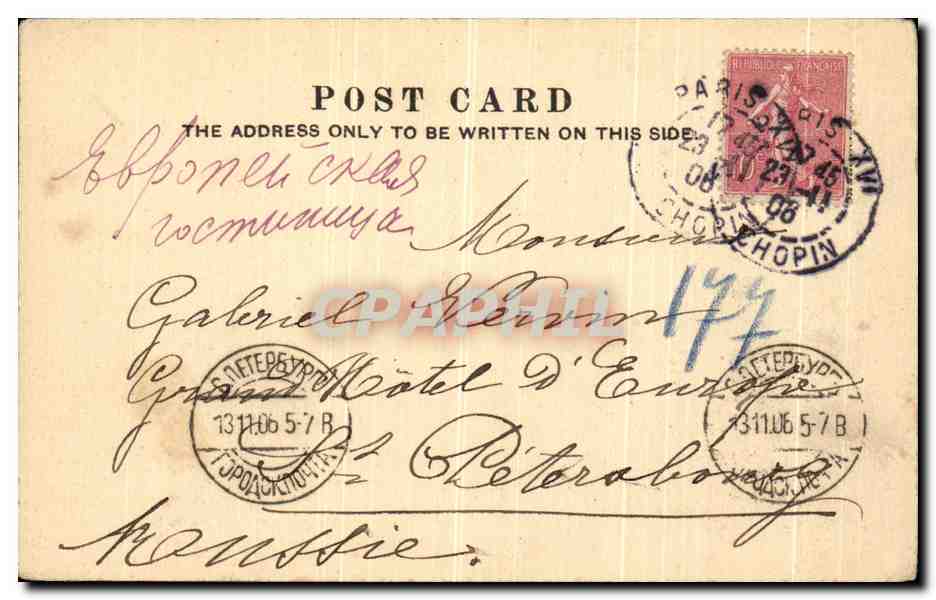 POST CARD
THE ADDRESS ONLY TO BE WRITTEN ON THIS SIDE.
REPUBLIQUE FRANÇAISE
PARIS XVI
23 - 11
06
CHOPIN
Европейская
гостиница
Monsieur
Gabriel
177
Grand Hôtel d'Europe
St Pétersbourg
Russie.
С.ПЕТЕРБУРГ
13.11.06 5-7 В
ГОРОДСК.ПОЧТА
С.ПЕТЕРБУРГ
13.11.06 5-7 В
ГОРОДСК.ПОЧТА
CPAPHIL